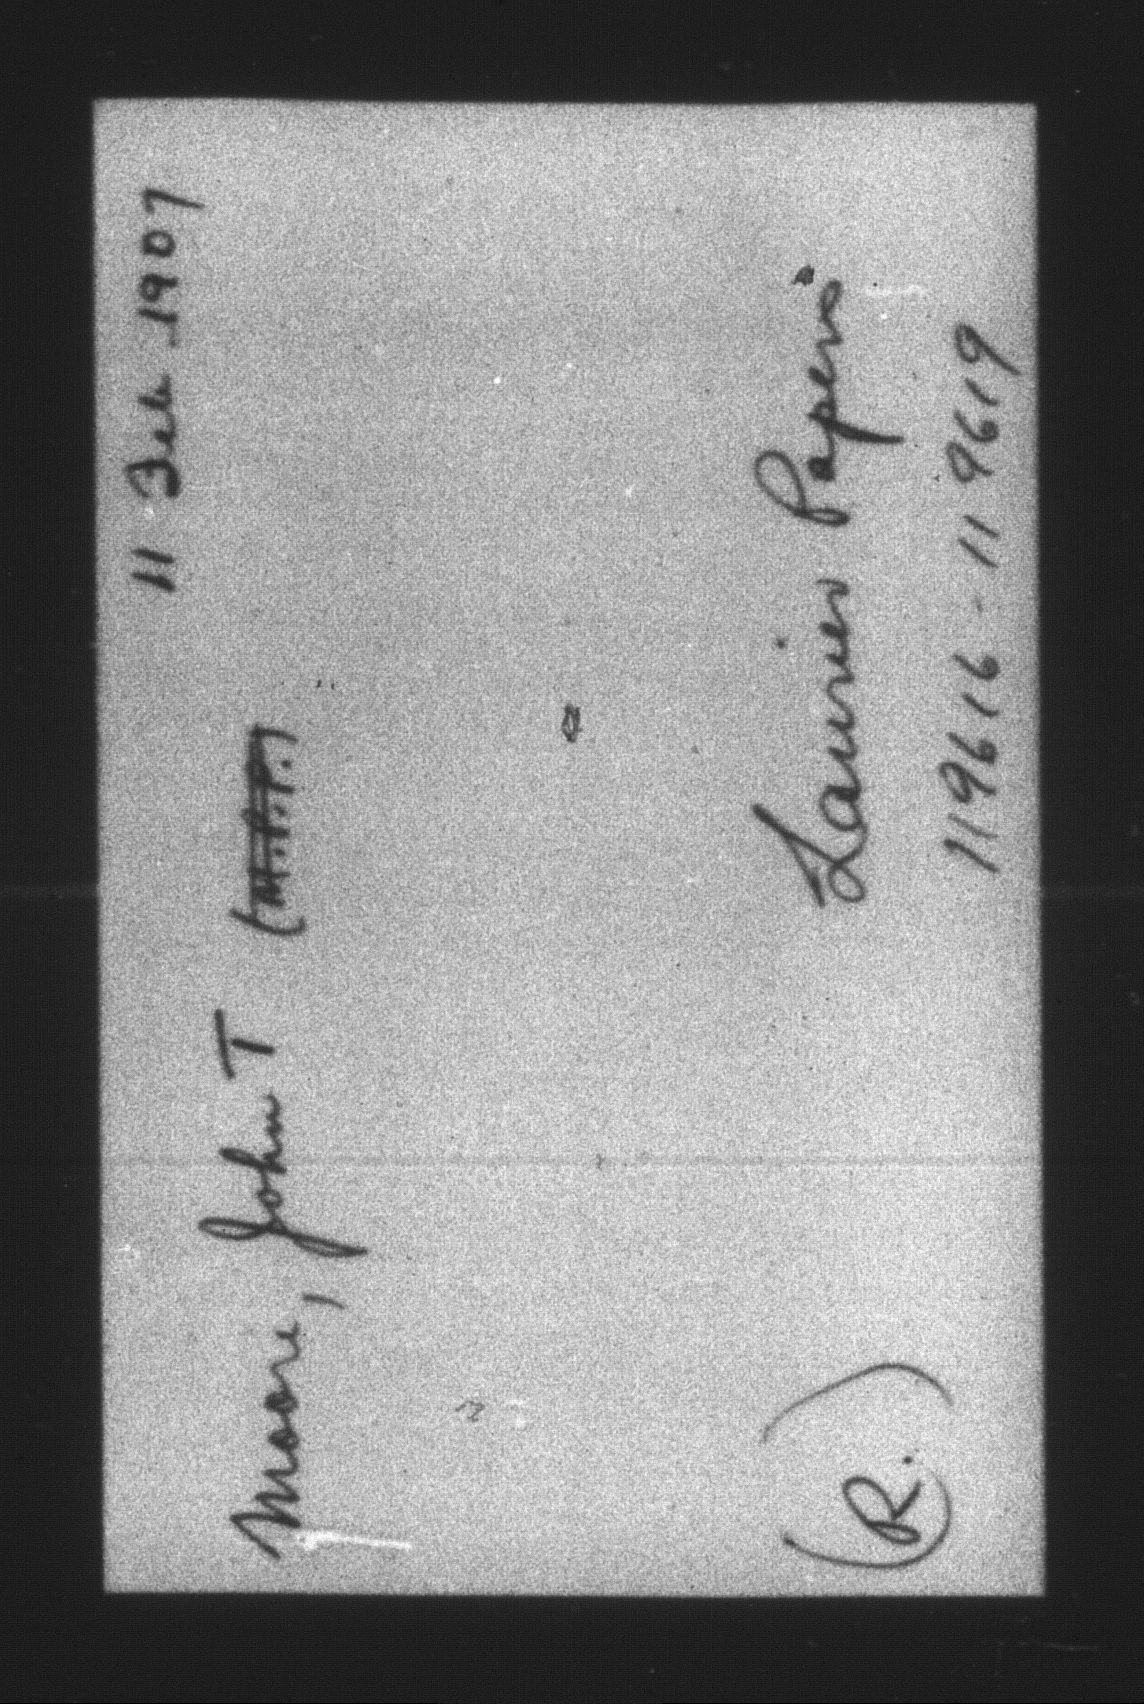 11 Feb 1907
Moore, John T (M.P.P.)
Laurier Papers
(R.) 119616-119619